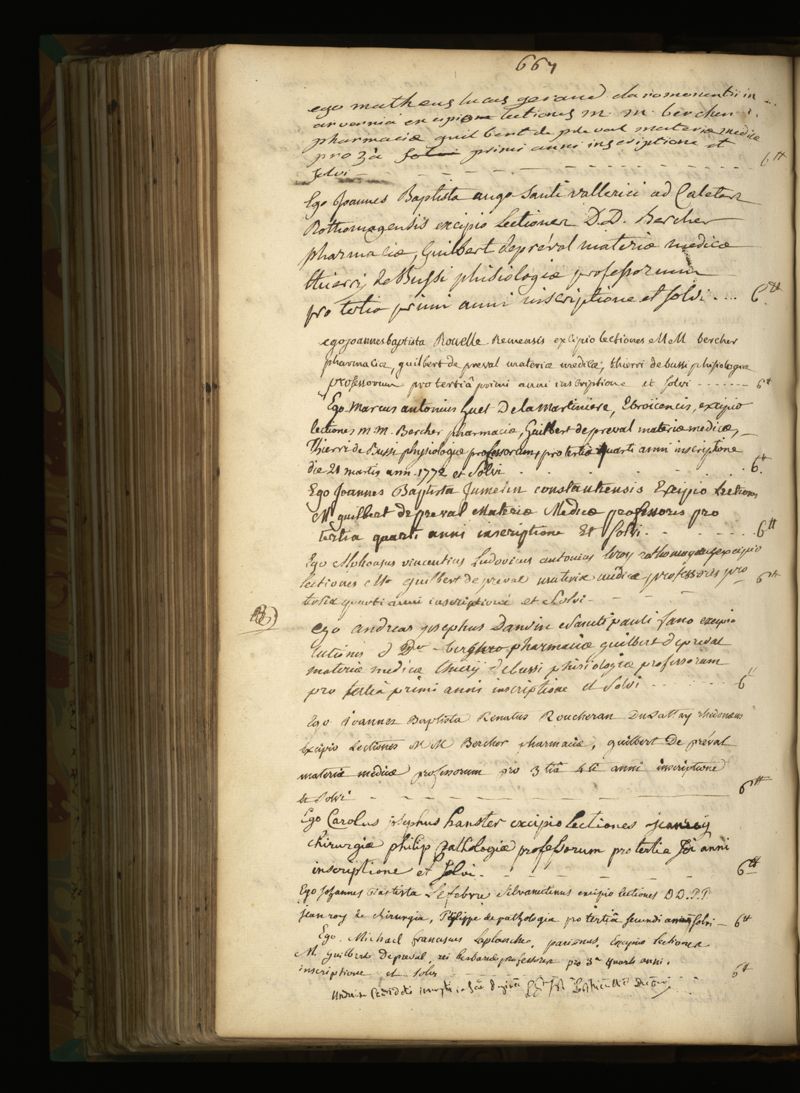 667
ego matheus lucas geraud claromontii in
arvernia excipio lectiones m. m. bercher
pharmaciæ guilbert de preval materiæ medicæ
pro 3a primi anni inscriptione et 6 tt
solvi
Ego Joannes Baptista auge Santi vallerici ad Caletarz
Rothomagensis excipio lectiones D.D. Bercher
pharmaciæ, Guilbert depréval materiæ medicæ
thierrij de Bussi phisiologiæ professorum
pro tertio primi anni inscriptione et solvi .... 6 tt
ego joannes baptista Rouelle Remensis excipio lectiones M M bercher
pharmaciæ, guilbert de preval materiæ medicæ, thierri de bussi phisiologiæ
professorum pro tertiâ primi anni inscriptione et solvi ....... 6 tt
Ego Marcus antonius huet De la Martiniere, Ebroicensis, excipio
lectiones m. m. Bercher pharmaciæ, Guilbert de preval materiæ medicæ,
Thierri de Bussi physiologiæ professorum, pro tertiâ quarti anni inscriptione
die 21 martis ann. 1772 et solvi . . . . . 6 tt
Ego Joannes Baptista Jumelin constantiensis Excipio lectiones
Mi guilbert de preval Materiæ Medicæ professoris pro
tertia quarti anni inscriptione Et solvi . . . . 6 tt
Ego vincentius Ludovicus antonius leroy excipio
lectiones guilbert de preval materiæ medicæ professoris pro 6 tt
tertiâ quarti anni inscriptione et solvi
ego andreas josephus Danvin e Sancti pauli fano excipio
lectiones d Dr bercher pharmaciæ guilbert depreval
materiæ medicæ thierij debussi phisiologiæ professorum
pro tertiâ primi anni inscriptione et solvi . . . . . 6 tt
Ego Joannes Baptista Renatus Roucheran rhedonæus
excipio Lectiones M M Bercher pharmaciæ, guilbert De préval
materiæ medicæ professorum pro 3 tiâ 4 ti anni inscriptione
et solvi 6 tt
Ego Carolus josephus hanster excipio lectiones jeanroij
chirurgiæ philip pathologiæ professorum pro tertiâ anni
inscriptione et solvi . 6 tt
Ego Johannes Baptista Lefebvre Silvanectensis excipio lectiones D.D.P.P.
jeanroy de chirurgia, Philippe de pathologia pro tertiâ secundi anni solvi 6 tt
Ego Michael franciscus laplanche, parisinus, Excipio lectiones
M. guilbert depreval, rei herbariæ professoris pro 3a quarti anni
inscriptione et solvi 6 tt